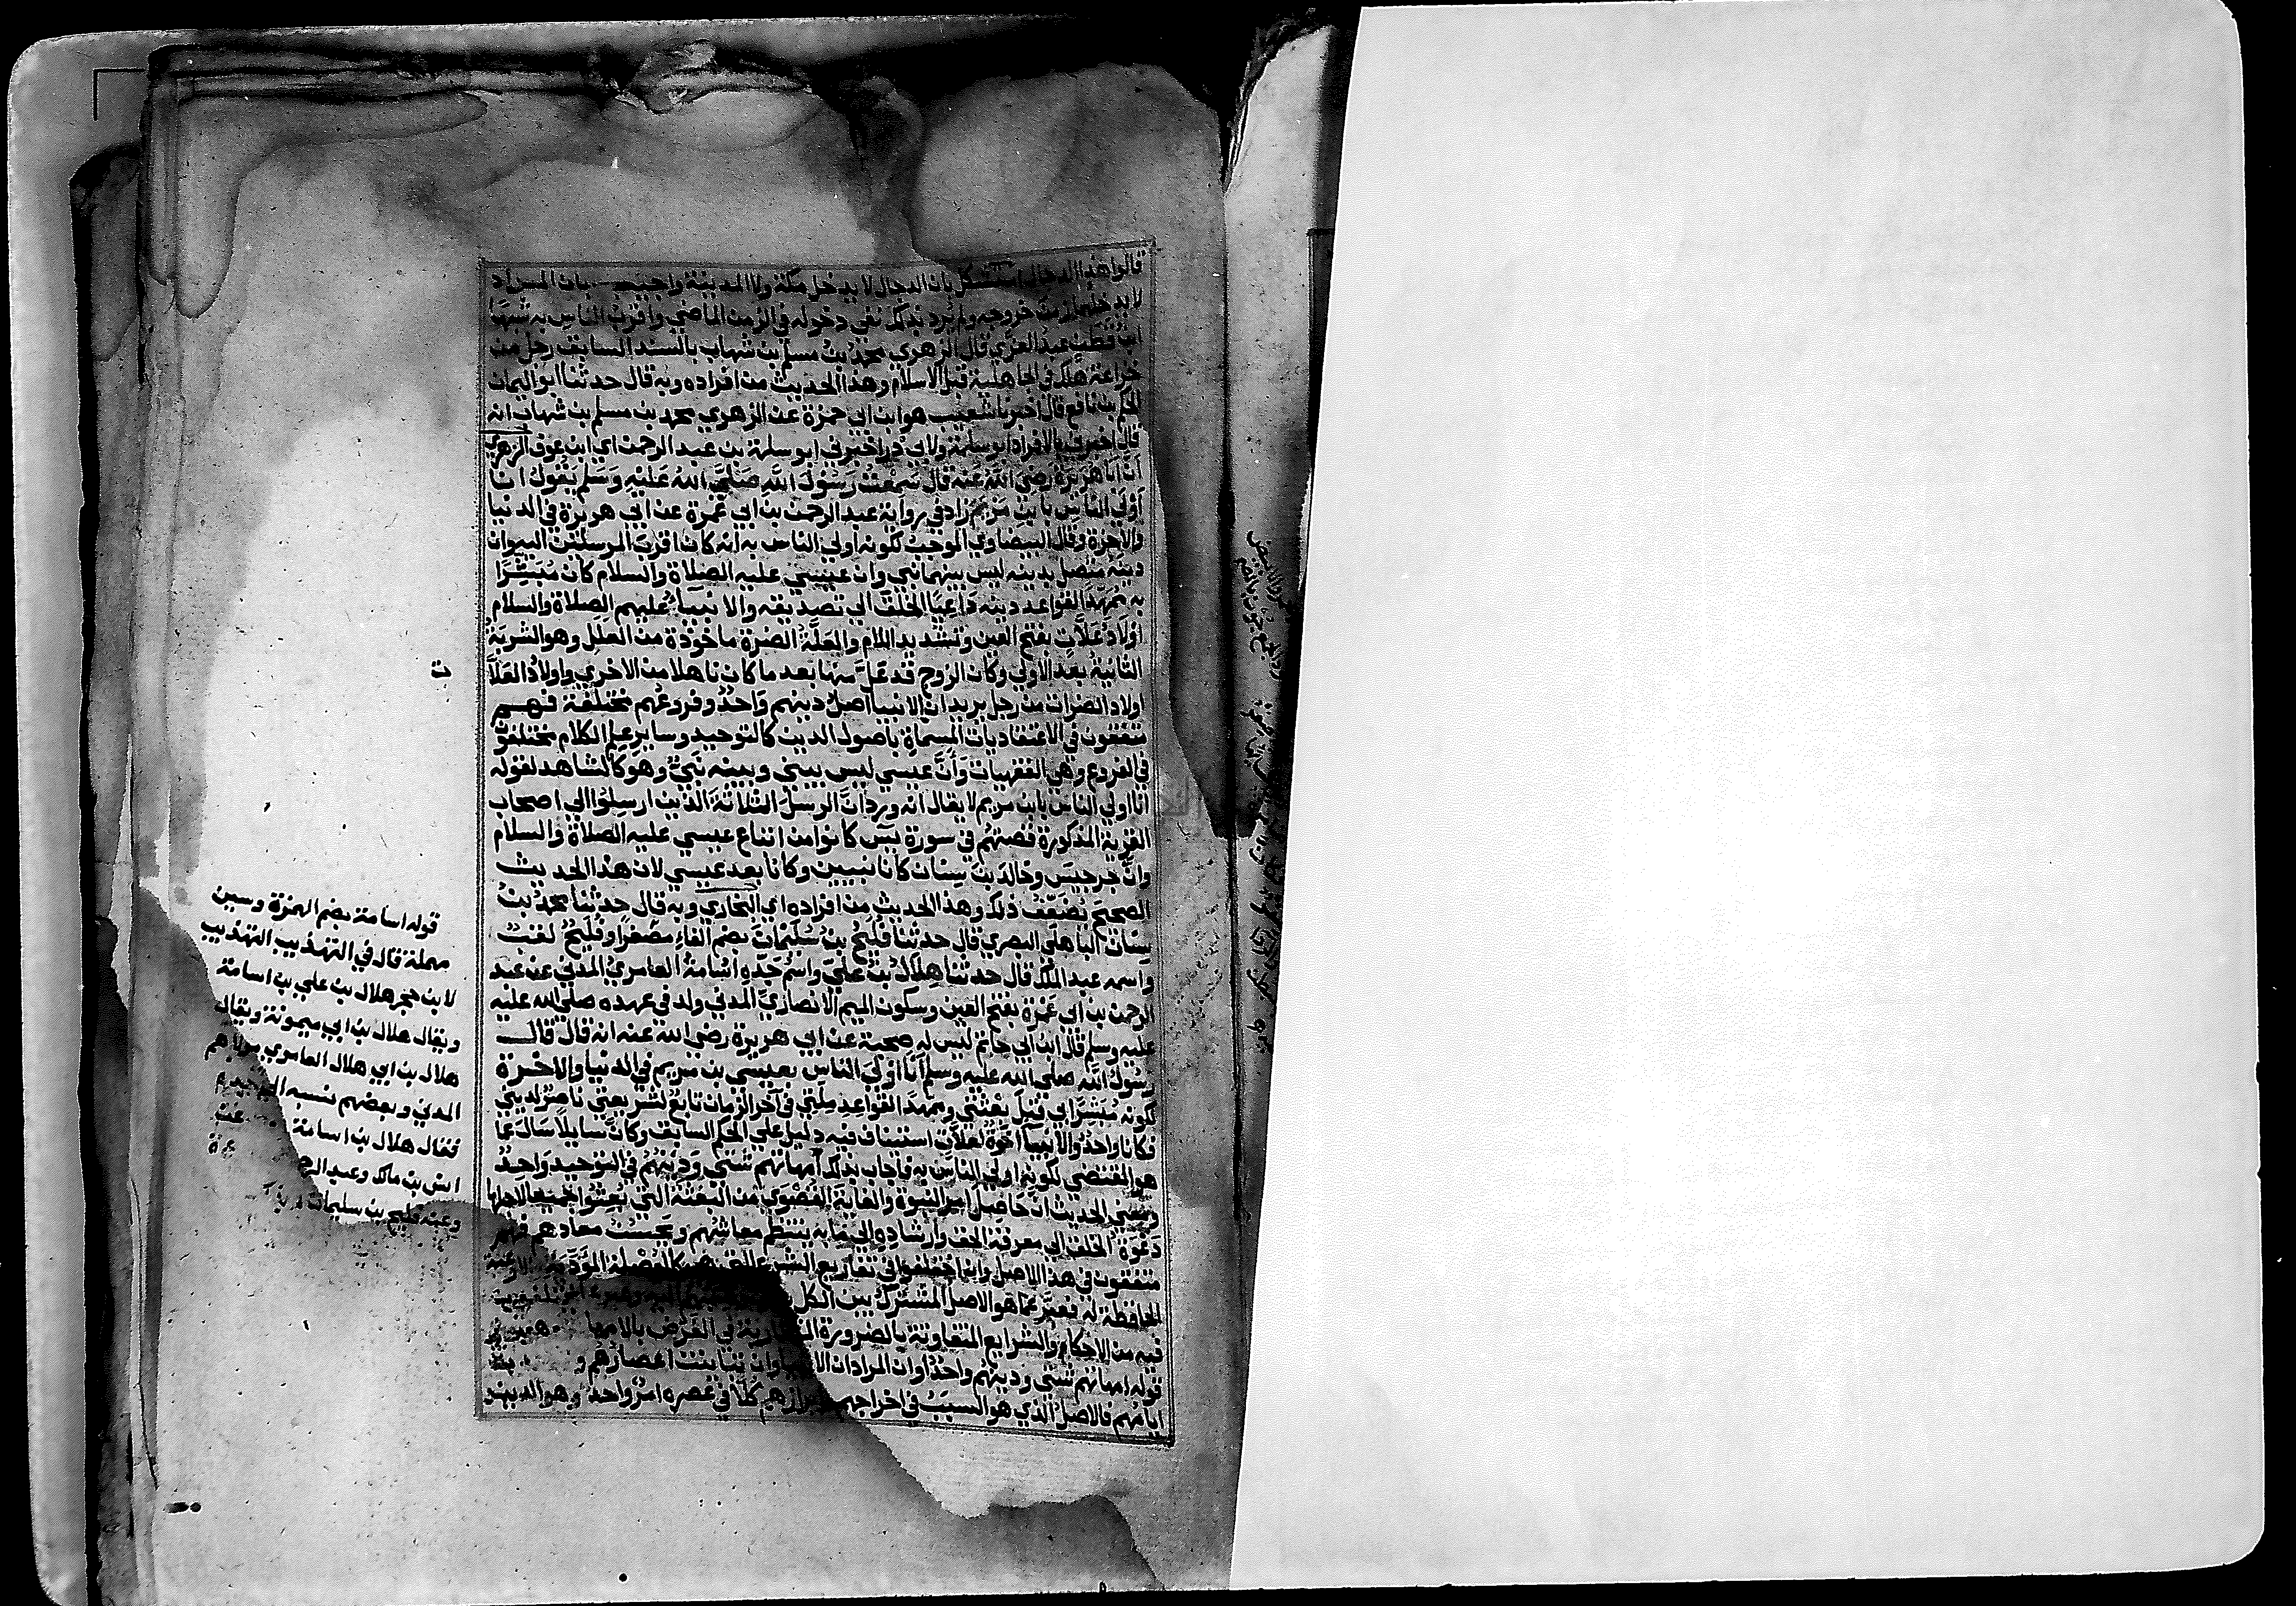 قالوا هذا الدجال استشكل بان الدجال لا يدخل مكة ولا المدينة واجيب بان المراد
لا يدخلهما زمن خروجه ولم يرد بذلك نفي دخوله في الزمن الماضي واقرب الناس به شبها
ابن قطن عبد العزي قال الزهري محمد بن مسلم بن شهاب بالسند السابق رجل من
خزاعة هلك في الجاهلية قبل الاسلام وهذا الحديث من افراده وبه قال حدثنا ابو اليمان
الحكم بن نافع قال اخبرنا شعيب هو ابن ابي حمزة عن الزهري محمد بن مسلم بن شهاب انه
قال اخبرني بالافراد ابو سلمة ولابي ذر اخبرني ابو سلمة بن عبد الرحمن اي ابن عوف الزهري
ان ابا هريرة رضي الله عنه قال سمعت رسول الله صلي الله عليه وسلم يقول انا
اولي الناس بابن مريم زاد في رواية عبد الرحمن بن ابي عمرة عن ابي هريرة في الدنيا
والاخرة وقال البيضاوي الموجب لكونه اولي الناس به انه كان اقرب المرسلين اليه وان
دينه متصل بدينه ليس بينهما نبي وان عيسي عليه الصلاة والسلام كان مبشرا
به ممهدا لقواعد دينه داعيا الخلق الي تصديقه والانبياء عليهم الصلاة والسلام
اولاد علات بفتح العين وتشديد اللام والعلة الضرة ماخوذة من العلل وهو الشربة
الثانية بعد الاولي وكان الزوج قد عل منها بعد ما كان ناهلا من الاخري واولاد العلا
ت
اولاد الضرات من رجل يريد ان الانبيا اصل دينهم واحد وفروعهم مختلفة فهم
متفقون في الاعتقاديات المسماة باصول الدين كالتوحيد وساير علم الكلام مختلفون
في الفروع وهي الفقهيات وان عيسي ليس بيني وبينه نبي وهو كالشاهد لقوله
انا اولي الناس بابن مريم لا يقال انه ورد ان الرسل الثلاثة الذين ارسلوا الي اصحاب
القرية المذكورة قصتهم في سورة يس كانوا من اتباع عيسي عليه الصلاة والسلام
وان جرجيس وخالد بن سنان كانا نبيين وكانا بعد عيسي لان هذا الحديث
الصحيح يضعف ذلك وهذا الحديث من افراده اي البخاري وبه قال حدثنا محمد بن
سنان الباهلي البصري قال حدثنا فليح بن سليمان بضم الفاء مصغرا وفليح لقب
واسمه عبد الملك قال حدثنا هلال بن علي واسم جده اسامة العامري المدني عن عبد
الرحمن بن ابي عمرة بفتح العين وسكون الميم الانصاري المدني ولد في عهده صلي الله عليه
عليه وسلم قال ابن ابي حاتم ليس له صحبة عن ابي هريرة رضي الله عنه انه قال قال
رسول الله صلي الله عليه وسلم انا اولي الناس بعيسي بن مريم في الدنيا والاخرة
لكونه مبشرا بي قبل بعثتي وممهدا لقواعد ملتي في آخر الزمان تابع لشريعتي ناصر لديني
فكانا واحد والانبيا اخوة لعلات استيناف فيه دليل علي الحكم السابق وكان سايلا سال عما
هو المقتضي لكونه اولي الناس به فاجاب بذلك امهاتهم شتي ودينهم في التوحيد واحد
ومعني الحديث ان حاصل امر النبوة والغاية القصوي من البعثة التي بعثوا جميعا لاجلها
دعوة الخلق الي معرفة الحق وارشادهم الي ما به ينتظم معاشهم ويحسن معادهم فهم
متفقون في هذا الاصل وان اختلفوا في تفاريع الشرع
الحافظة له فعبر عما هو الاصل المشترك بين الكل
فيه من الاحكام والشرايع المتفاوتة بالصورة المتقاربة في الغرض بالامهات
قوله امهاتهم شتي ودينهم واحد او ان المراد ان الانبيا وان تباينت اعصارهم و
ايامهم فالاصل الذي هو السبب في اخراجهم وابرازهم كلا في عصره امر واحد وهو الدين
قوله اسامة بضم الهمزة وسين
مهملة قال في التهذيب التهذيب
لابن حجر هلال بن علي بن اسامة
ويقال هلال بن ابي ميمونة ويقال
هلال بن ابي هلال العامري مولاهم
المدني وبعضهم ينسبه الي جده
فقال هلال بن اسامة عن
انس بن مالك وعبد الرحمن عمرة
وعنه فليح بن سليمان